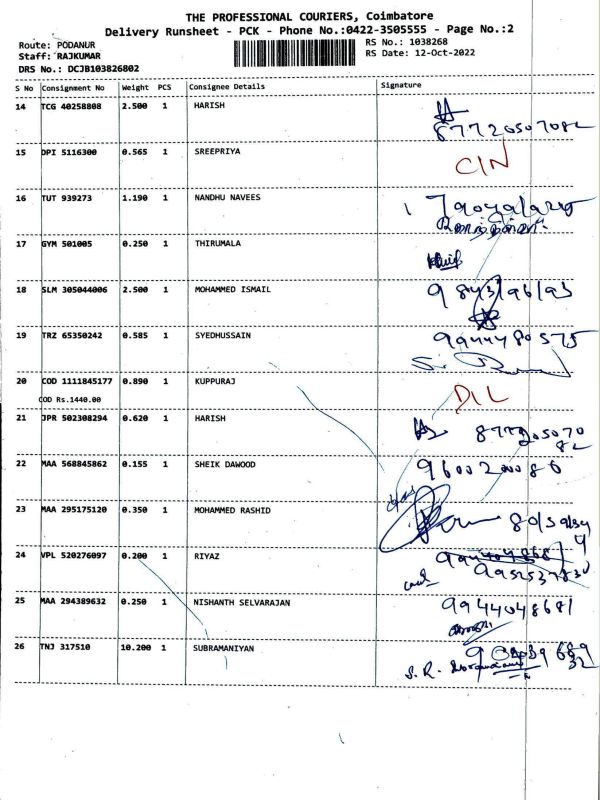 THE PROFESSIONAL COURIERS, Coimbatore
Delivery Runsheet - PCK - Phone No.:0422-3505555 - Page No.:2
Route: PODANUR
Staff: RAJKUMAR
DRS No.: DCJB103826802
RS No.: 1038268
RS Date: 12-Oct-2022
S No Consignment No Weight PCS Consignee Details Signature
14 TCG 40258808 2.500 1 HARISH
15 DPI 5116300 0.565 1 SREEPRIYA CIN
16 TUT 939273 1.190 1 NANDHU NAVEES
17 GYM 501005 0.250 1 THIRUMALA
18 SLM 305044006 2.500 1 MOHAMMED ISMAIL
19 TRZ 65350242 0.585 1 SYEDHUSSAIN 9944480575
20 COD 1111845177 0.890 1 KUPPURAJ DIL
COD Rs.1440.00
21 JPR 502308294 0.620 1 HARISH 877205070
82
22 MAA 568845862 0.155 1 SHEIK DAWOOD 9600200086
23 MAA 295175120 0.350 1 MOHAMMED RASHID
24 VPL 520276097 0.200 1 RIYAZ
25 MAA 294389632 0.250 1 NISHANTH SELVARAJAN 9944048681
26 TNJ 317510 10.200 1 SUBRAMANIYAN
S. R.